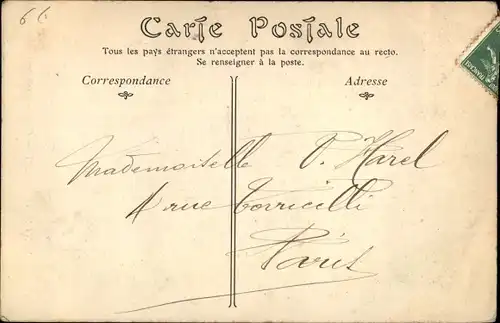 Carte Postale
Tous les pays étrangers n'acceptent pas la correspondance au recto.
Se renseigner à la poste.
Correspondance
Adresse
Mademoiselle P. Harel
4 rue Torricelli
Paris